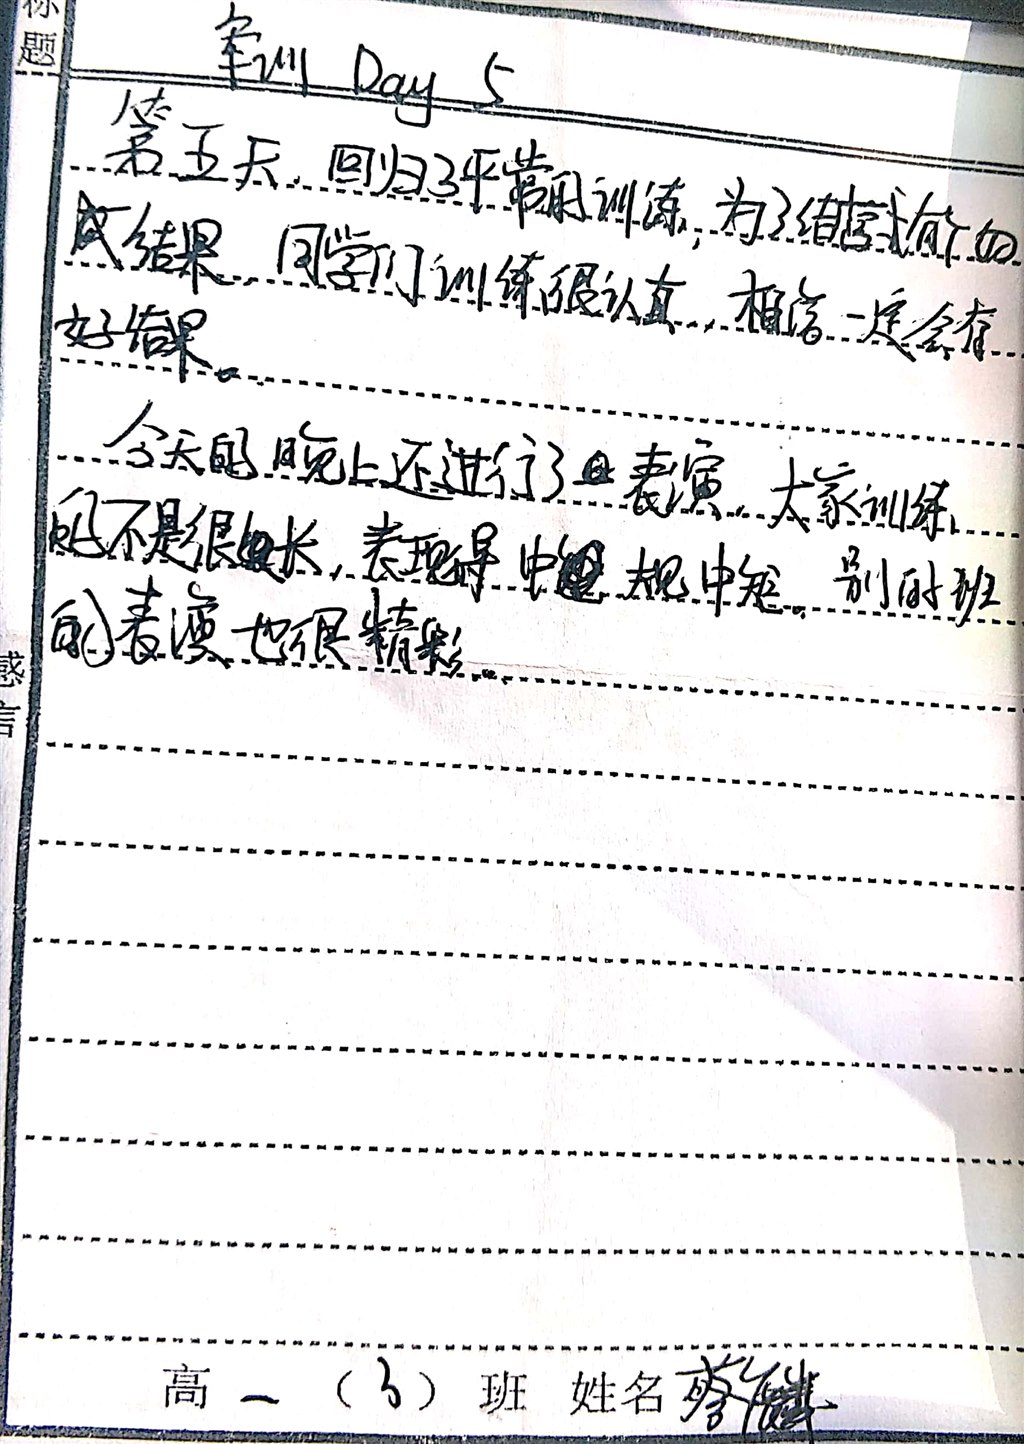 标题
军训 Day 5
第五天，回归了平常的训练，为了结营式有个好的
成结果，同学们训练很认真，相信一定会有
好结果。
今天的晚上还进行了表演，大家训练
的不是很长，表现得中规中矩。别的班
的表演也很精彩。
感言
高一（3）班 姓名 蔡